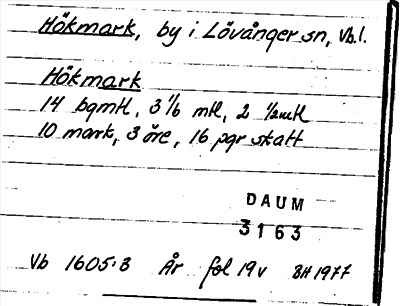 Hökmark, by i Lövånger sn, Vb.l.
Hökmark
14 bgmtl, 3 1/6 mtl, 2 1/2mtl
10 mark, 3 öre, 16 pgr skatt
DAUM
3163
Vb 1605:3 År fol 19v BH 1977